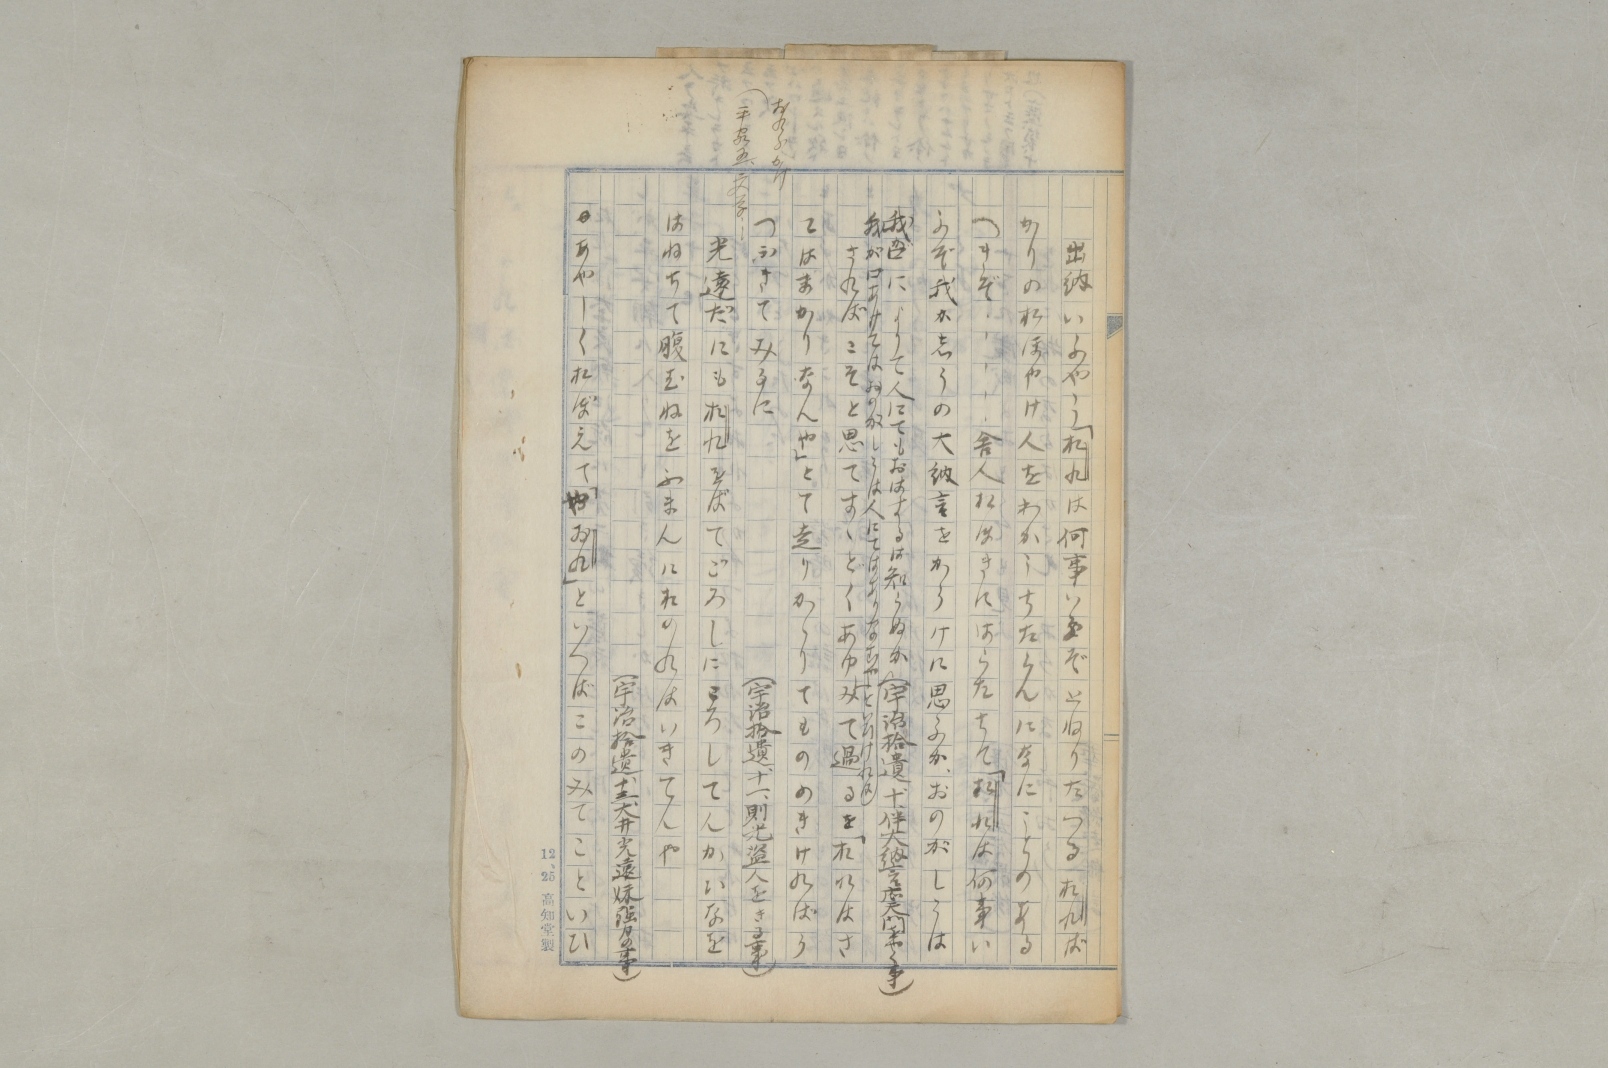 おれらがけ
(平家五、文学、、
出納いふやう「おれは何事いふぞとねりたつるおればかりのおほやけ人をわがうちたらんになにごとのあるべきぞ、、、、、舎人おほきにはらたちて「おれは何事いふぞ我が志うの大納言をかうけに思ふか、おのがしうは
我吾によりて人にてもおはするは知らぬか
我が口あけてはおのがしうは人にてはありなむやといひければ(宇治拾遺十、伴大納言應天門ヲ焼ク事)
さればこそと思てすゝどくあゆみて過るを「おれはさ
てはまかりなんや」とて走りかゝりてものゝきければう
つぶきてみるに
(宇治拾遺、十一、則光盗人をきる事)
光遠だにもおれをばてごろしにころしてんかいなを
はねぢて腹むねをふまんにおのれはいきてんや
(宇治拾遺、十三、大井光遠妹強力の事)
あやしくおぼえて「やおれ」といへばこのみてこといひ
12、25 高知堂製